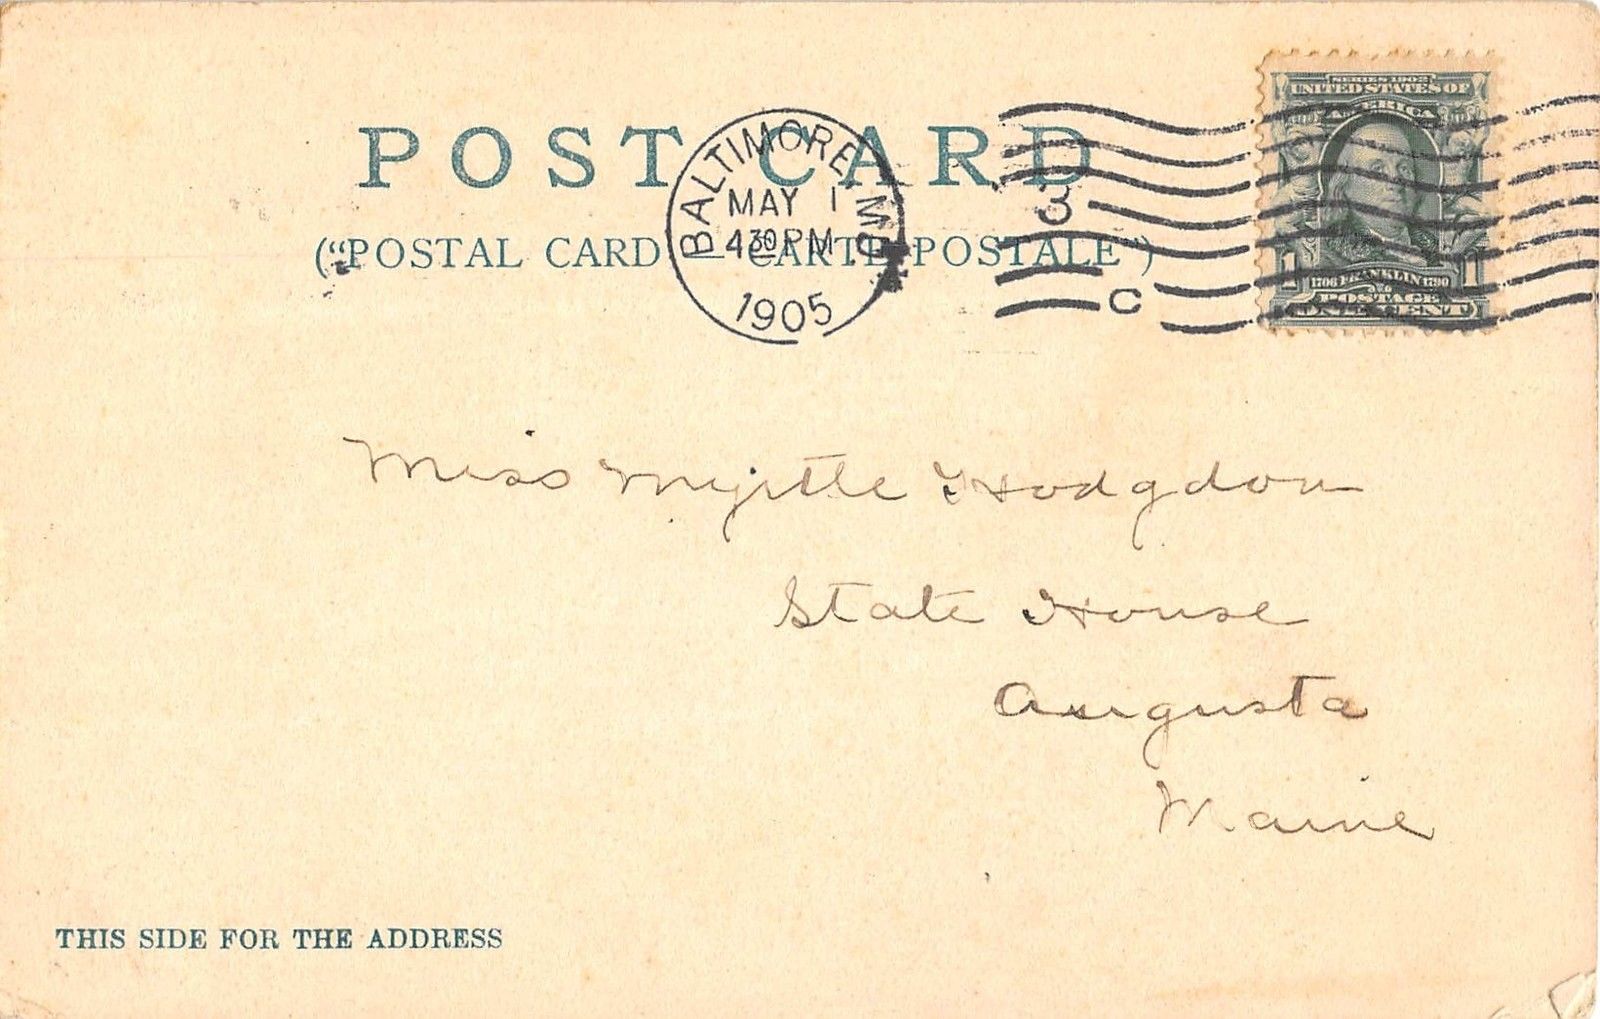 POST CARD
("POSTAL CARD — CARTE POSTALE")
BALTIMORE, MD.
MAY 1
4 30 PM
1905
3
C
SERIES 1902
UNITED STATES OF
AMERICA
1 1706 FRANKLIN 1790 1
POSTAGE
ONE CENT
Miss Myrtle Hodgdon
State House
Augusta
Maine
THIS SIDE FOR THE ADDRESS